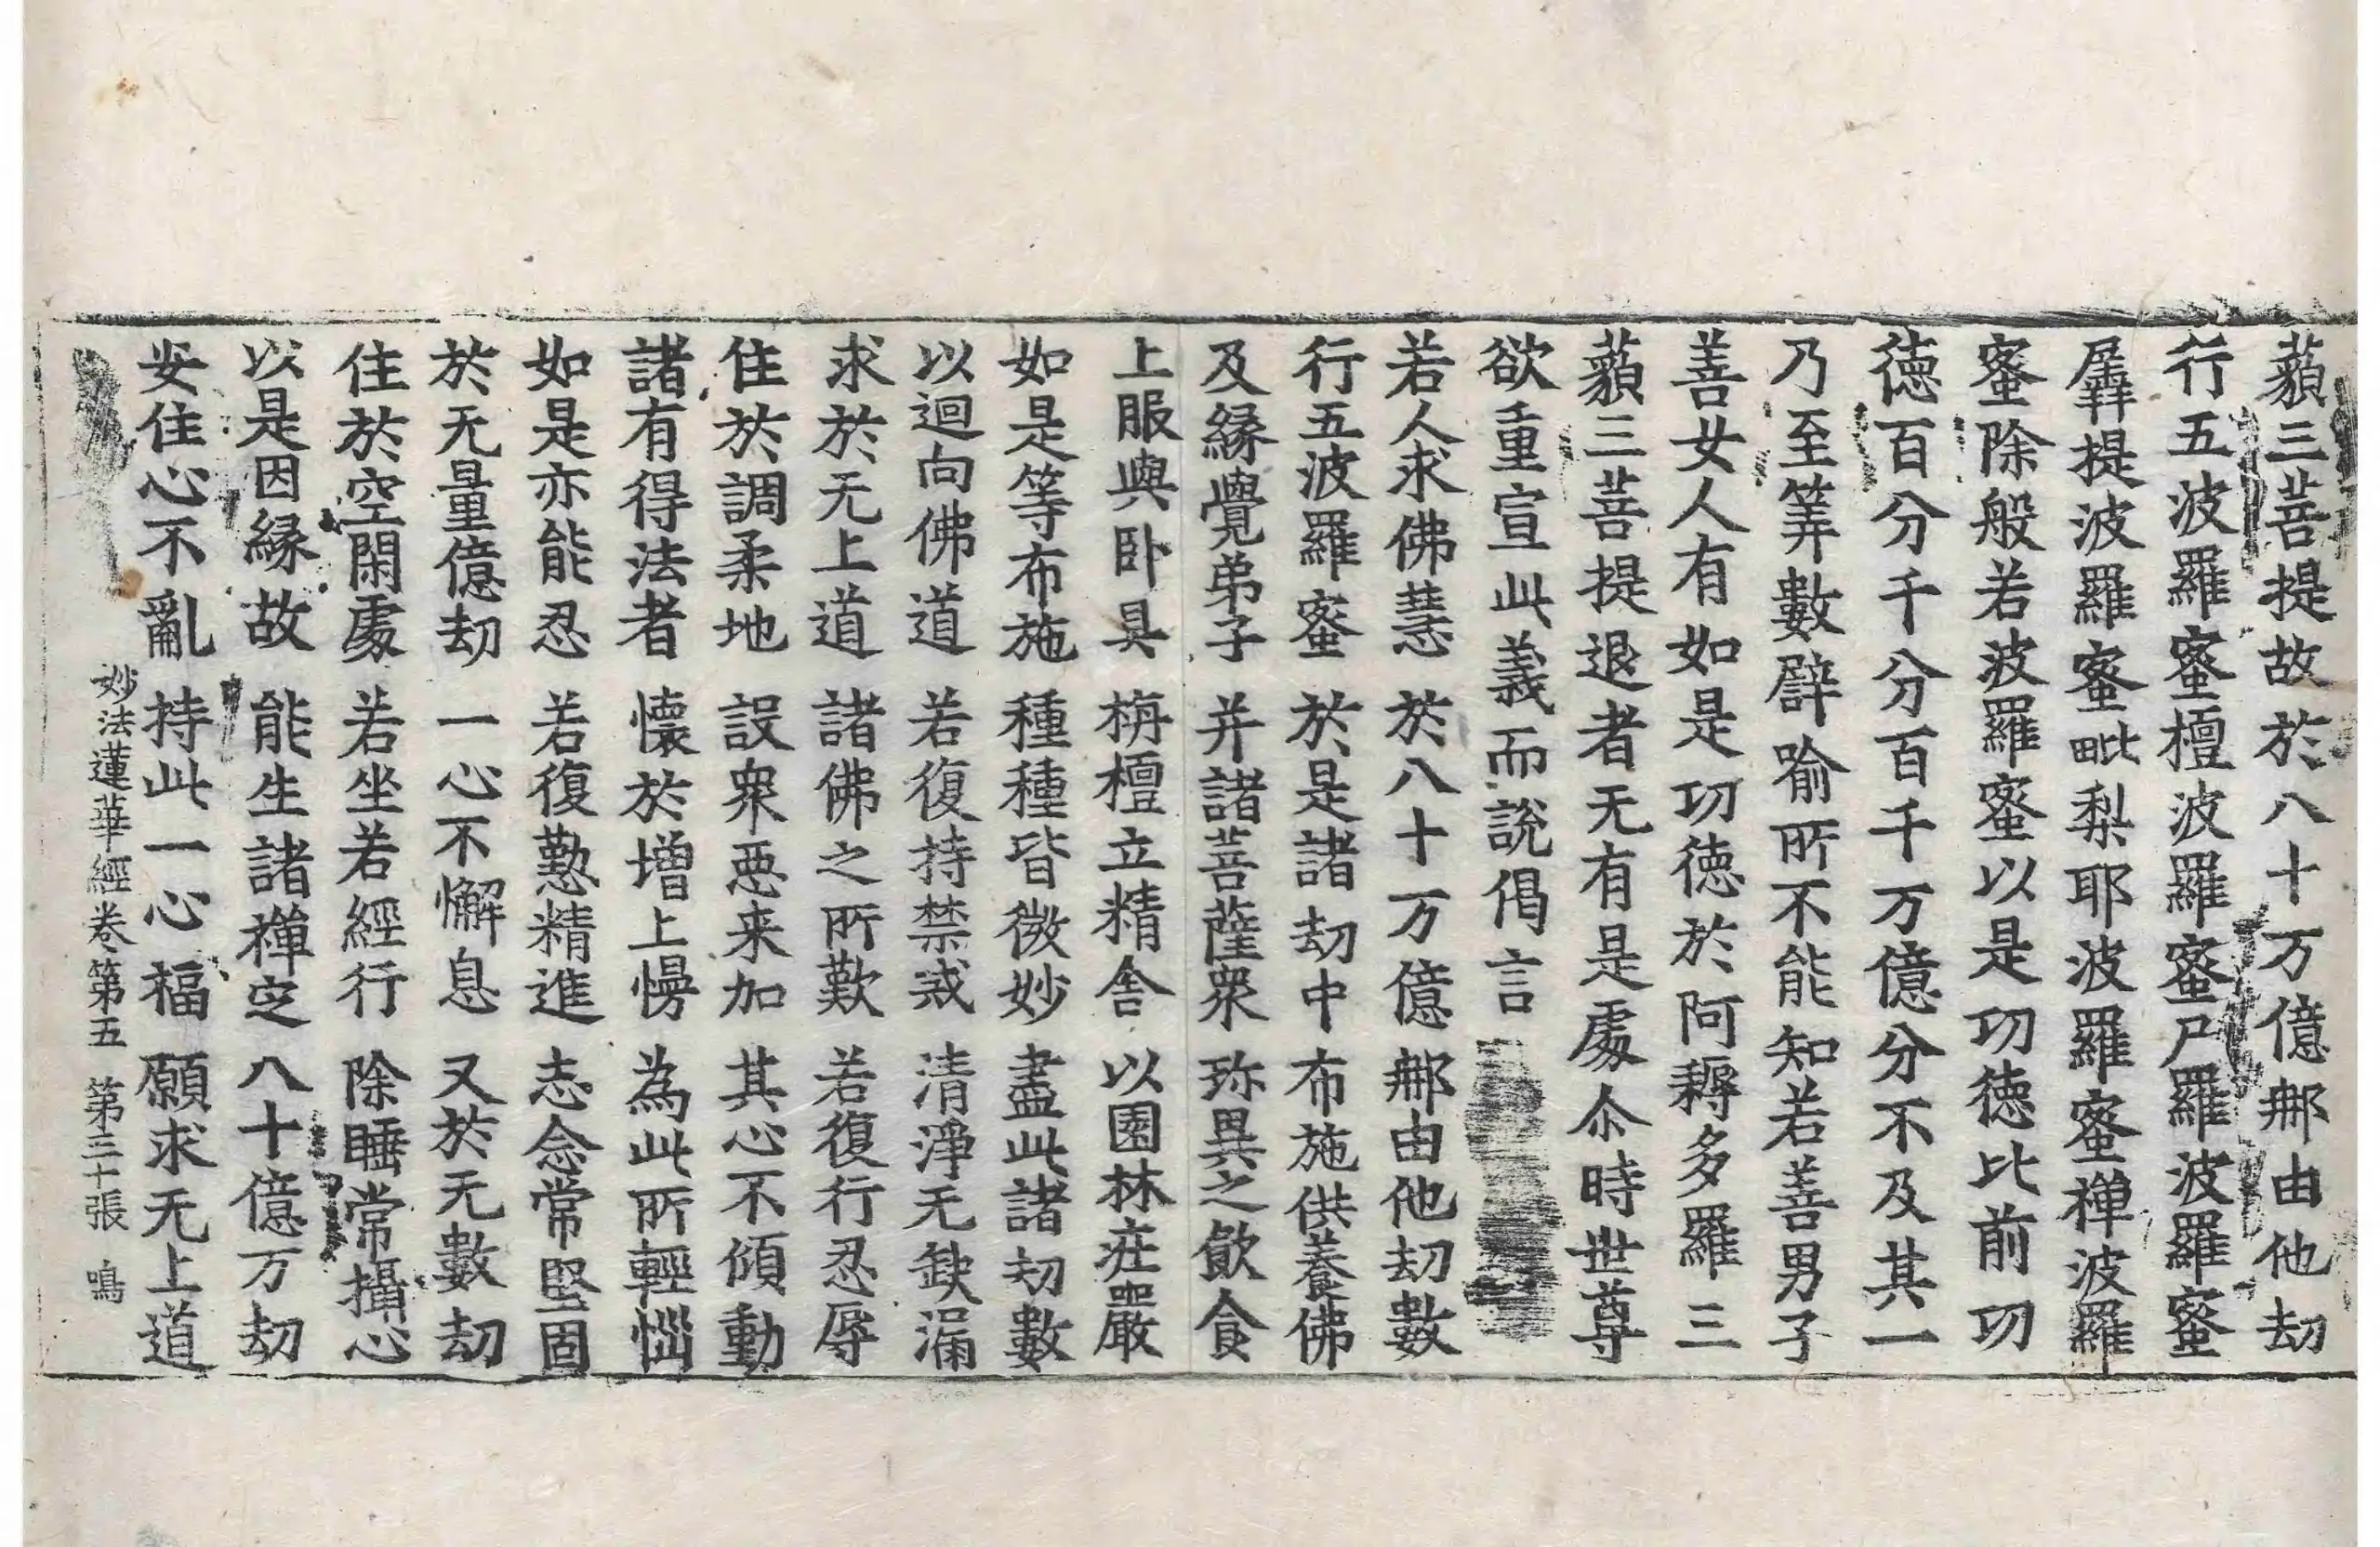 藐三菩提故於八十万億那由他劫
行五波羅蜜檀波羅蜜尸羅波羅蜜
羼提波羅蜜毗梨耶波羅蜜禅波羅
蜜除般若波羅蜜以是功徳比前功
徳百分千分百千万億分不及其一
乃至筭數譬喻所不能知若善男子
善女人有如是功徳於阿耨多羅三
藐三菩提退者无有是處尒時世尊
欲重宣此義而說偈言
若人求佛慧 於八十万億 那由他劫數
行五波羅蜜 於是諸劫中 布施供養佛
及縁覺弟子 并諸菩薩衆 珎異之飲食
上服與卧具 栴檀立精舎 以園林庄嚴
如是等布施 種種皆微妙 盡此諸劫數
以迴向佛道 若復持禁戒 清淨无缺漏
求於无上道 諸佛之所歎 若復行忍辱
住於調柔地 設衆悪来加 其心不傾動
諸有得法者 懐於增上慢 為此所輕惱
如是亦能忍 若復懃精進 志念常堅固
於无量億劫 一心不懈息 又於无數劫
住於空閑處 若坐若經行 除睡常攝心
以是因縁故 能生諸禅定 八十億万劫
安住心不亂 持此一心福 願求无上道
妙法蓮華經卷第五 第三十張 鳴